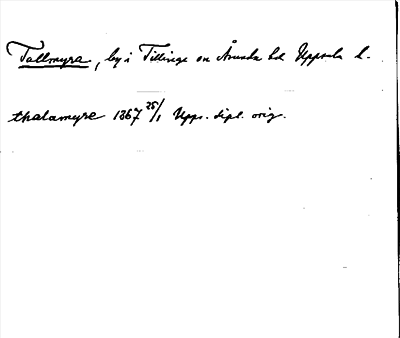 Tallmyra, by i Tillinge sn Åsunda hd Uppsala l.
thalamyre 1367 25/1 Upps. dipl. orig.